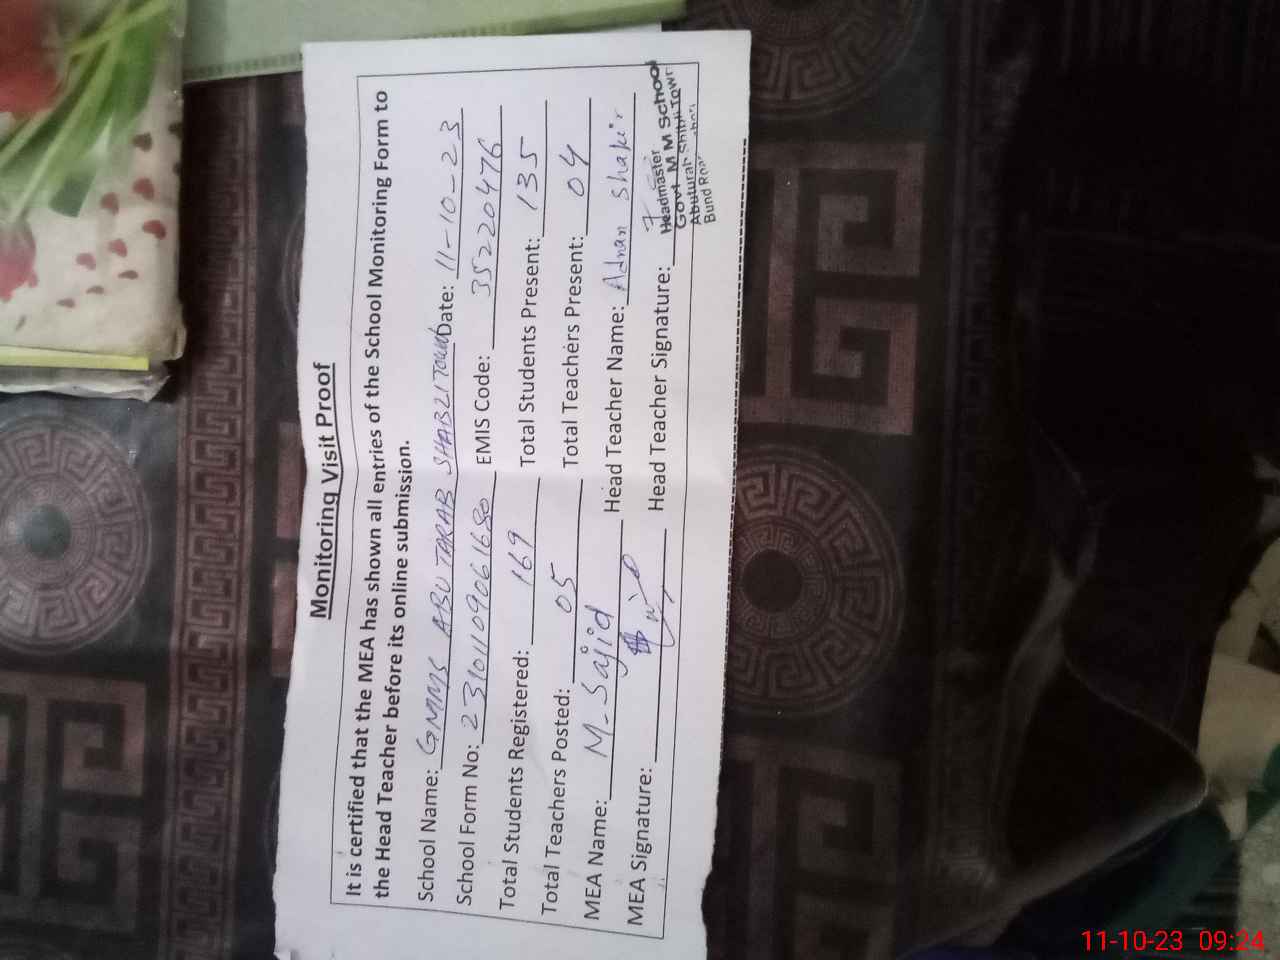 Monitoring Visit Proof
It is certified that the MEA has shown all entries of the School Monitoring Form to
the Head Teacher before its online submission.
School Name: GMMS ABU TARAB SHABLI TOWN Date: 11-10-23
School Form No: 23101109061680 EMIS Code: 35220476
Total Students Registered: 169 Total Students Present: 135
Total Teachers Posted: 05 Total Teachers Present: 04
MEA Name: M-Sajid Head Teacher Name: Adnan Shakir
MEA Signature: Head Teacher Signature:
Headmaster
Govt M M School
Shibli Town
Bund Road
11-10-23 09:24